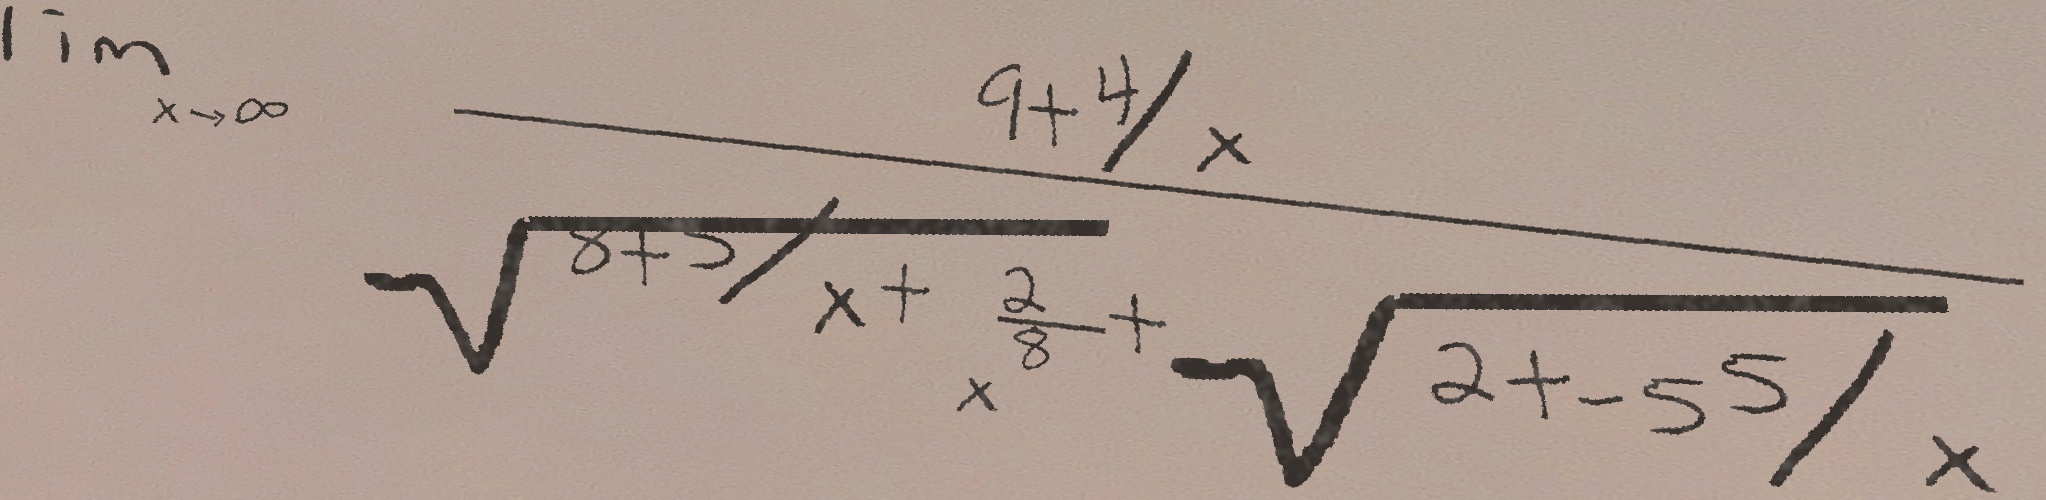 \lim_{x \to \infty} \frac{9 + 4/x}{\sqrt{8 + 5/x + \frac{2}{x^8}} + \sqrt{2 + -55/x}}